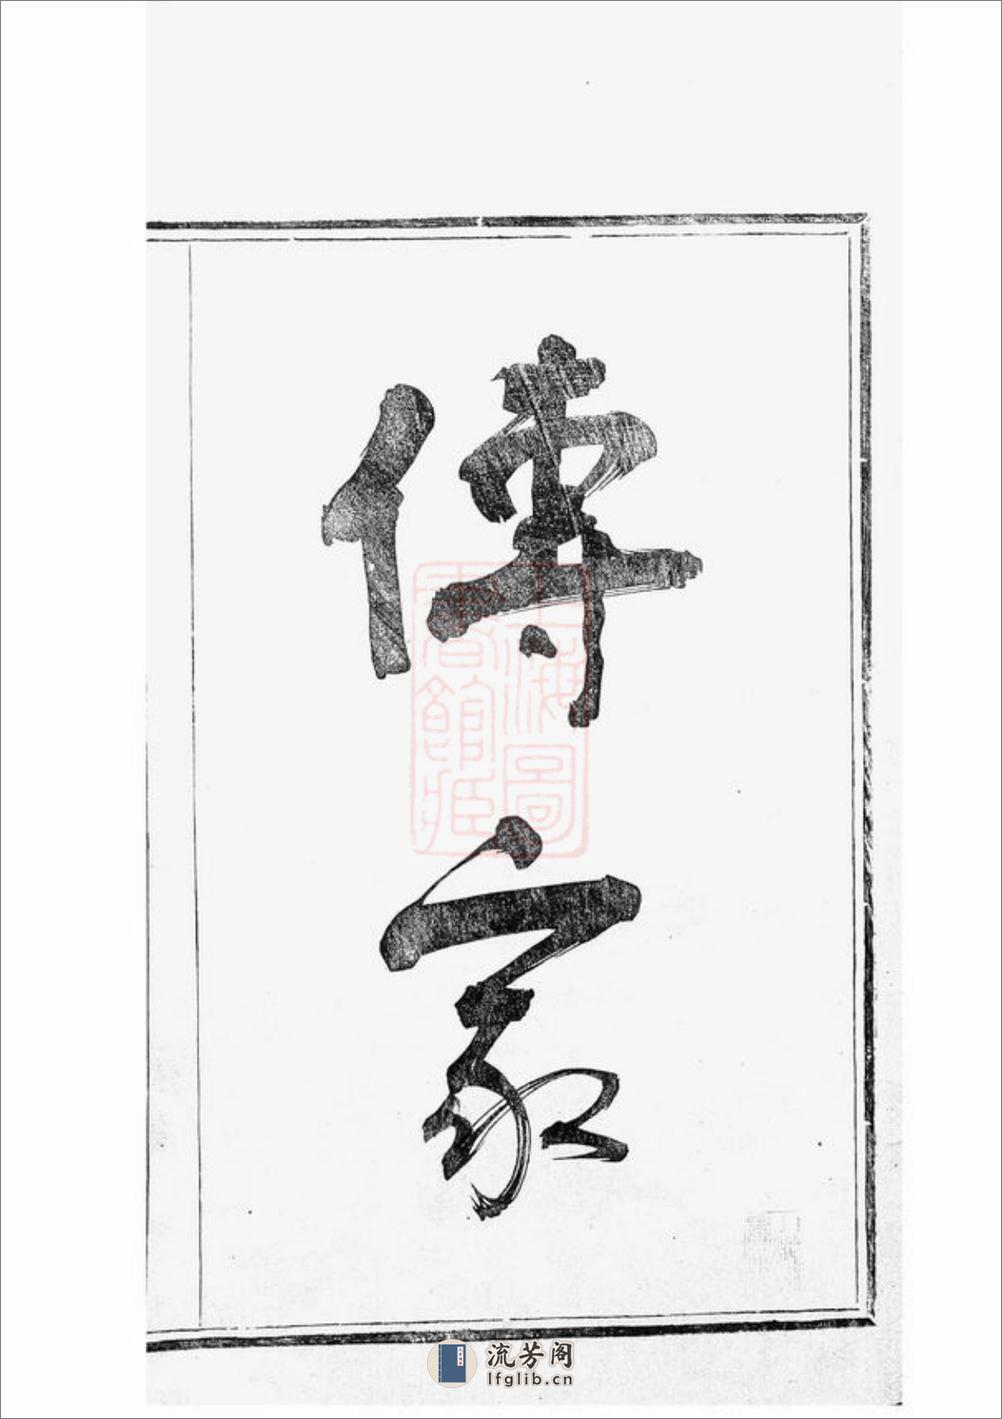 傳家
上海圖
書館藏
流芳阁
lfglib.cn